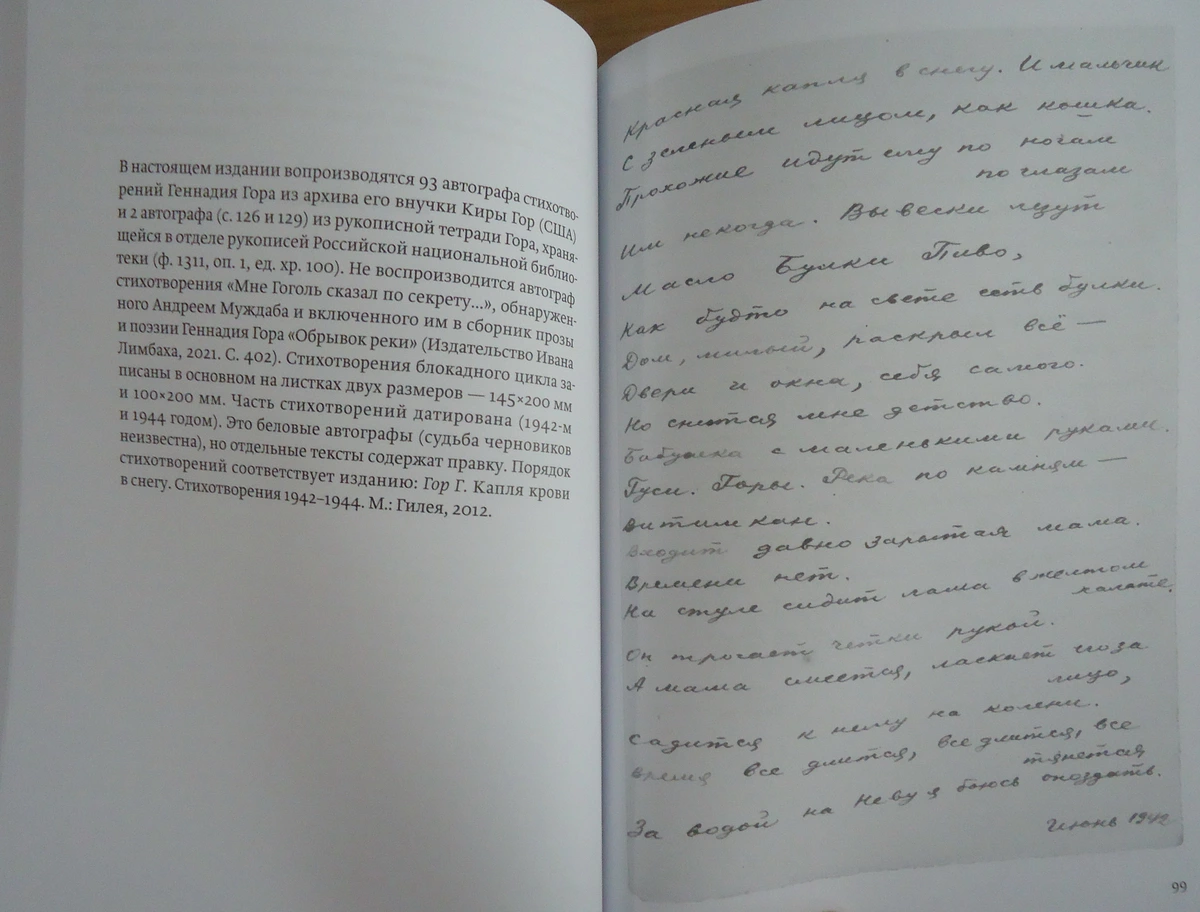 В настоящем издании вопроизводятся 93 автографа стихотво-
рений Геннадия Гора из архива его внучки Киры Гор (США)
и 2 автографа (с. 126 и 129) из рукописной тетради Гора, храня-
щейся в отделе рукописей Российской национальной библио-
теки (ф. 1311, оп. 1, ед. хр. 100). Не воспроизводится автограф
стихотворения «Мне Гоголь сказал по секрету...», обнаружен-
ного Андреем Муждаба и включенного им в сборник прозы
и поэзии Геннадия Гора «Обрывок реки» (Издательство Ивана
Лимбаха, 2021. С. 402). Стихотворения блокадного цикла за-
писаны в основном на листках двух размеров — 145×200 мм
и 100×200 мм. Часть стихотворений датирована (1942-м
и 1944 годом). Это беловые автографы (судьба черновиков
неизвестна), но отдельные тексты содержат правку. Порядок
стихотворений соответствует изданию: Гор Г. Капля крови
в снегу. Стихотворения 1942–1944. М.: Гилея, 2012.
Красная капля в снегу. И мальчик
С зеленым лицом, как кошка.
Прохожие идут ему по ногам
по глазам
Им некогда. Вывески лезут
Масло Булки Пиво,
Как будто на свете есть булки.
Дом, милый, раскрыл всё —
Двери и окна, себя самого.
Но снится мне детство.
Бабушка с маленькими руками.
Гуси. Горы. Река по камням —
Витимкан.
Входит давно зарытая мама.
Времени нет.
На стуле сидит лама в желтом
халате.
Он трогает четки рукой.
А мама смеется, ласкает его за
лицо,
Садится к нему на колени.
Время все длится, все длится, все
тянется
За водой на Неву я боюсь опоздать.
Июнь 1942
99